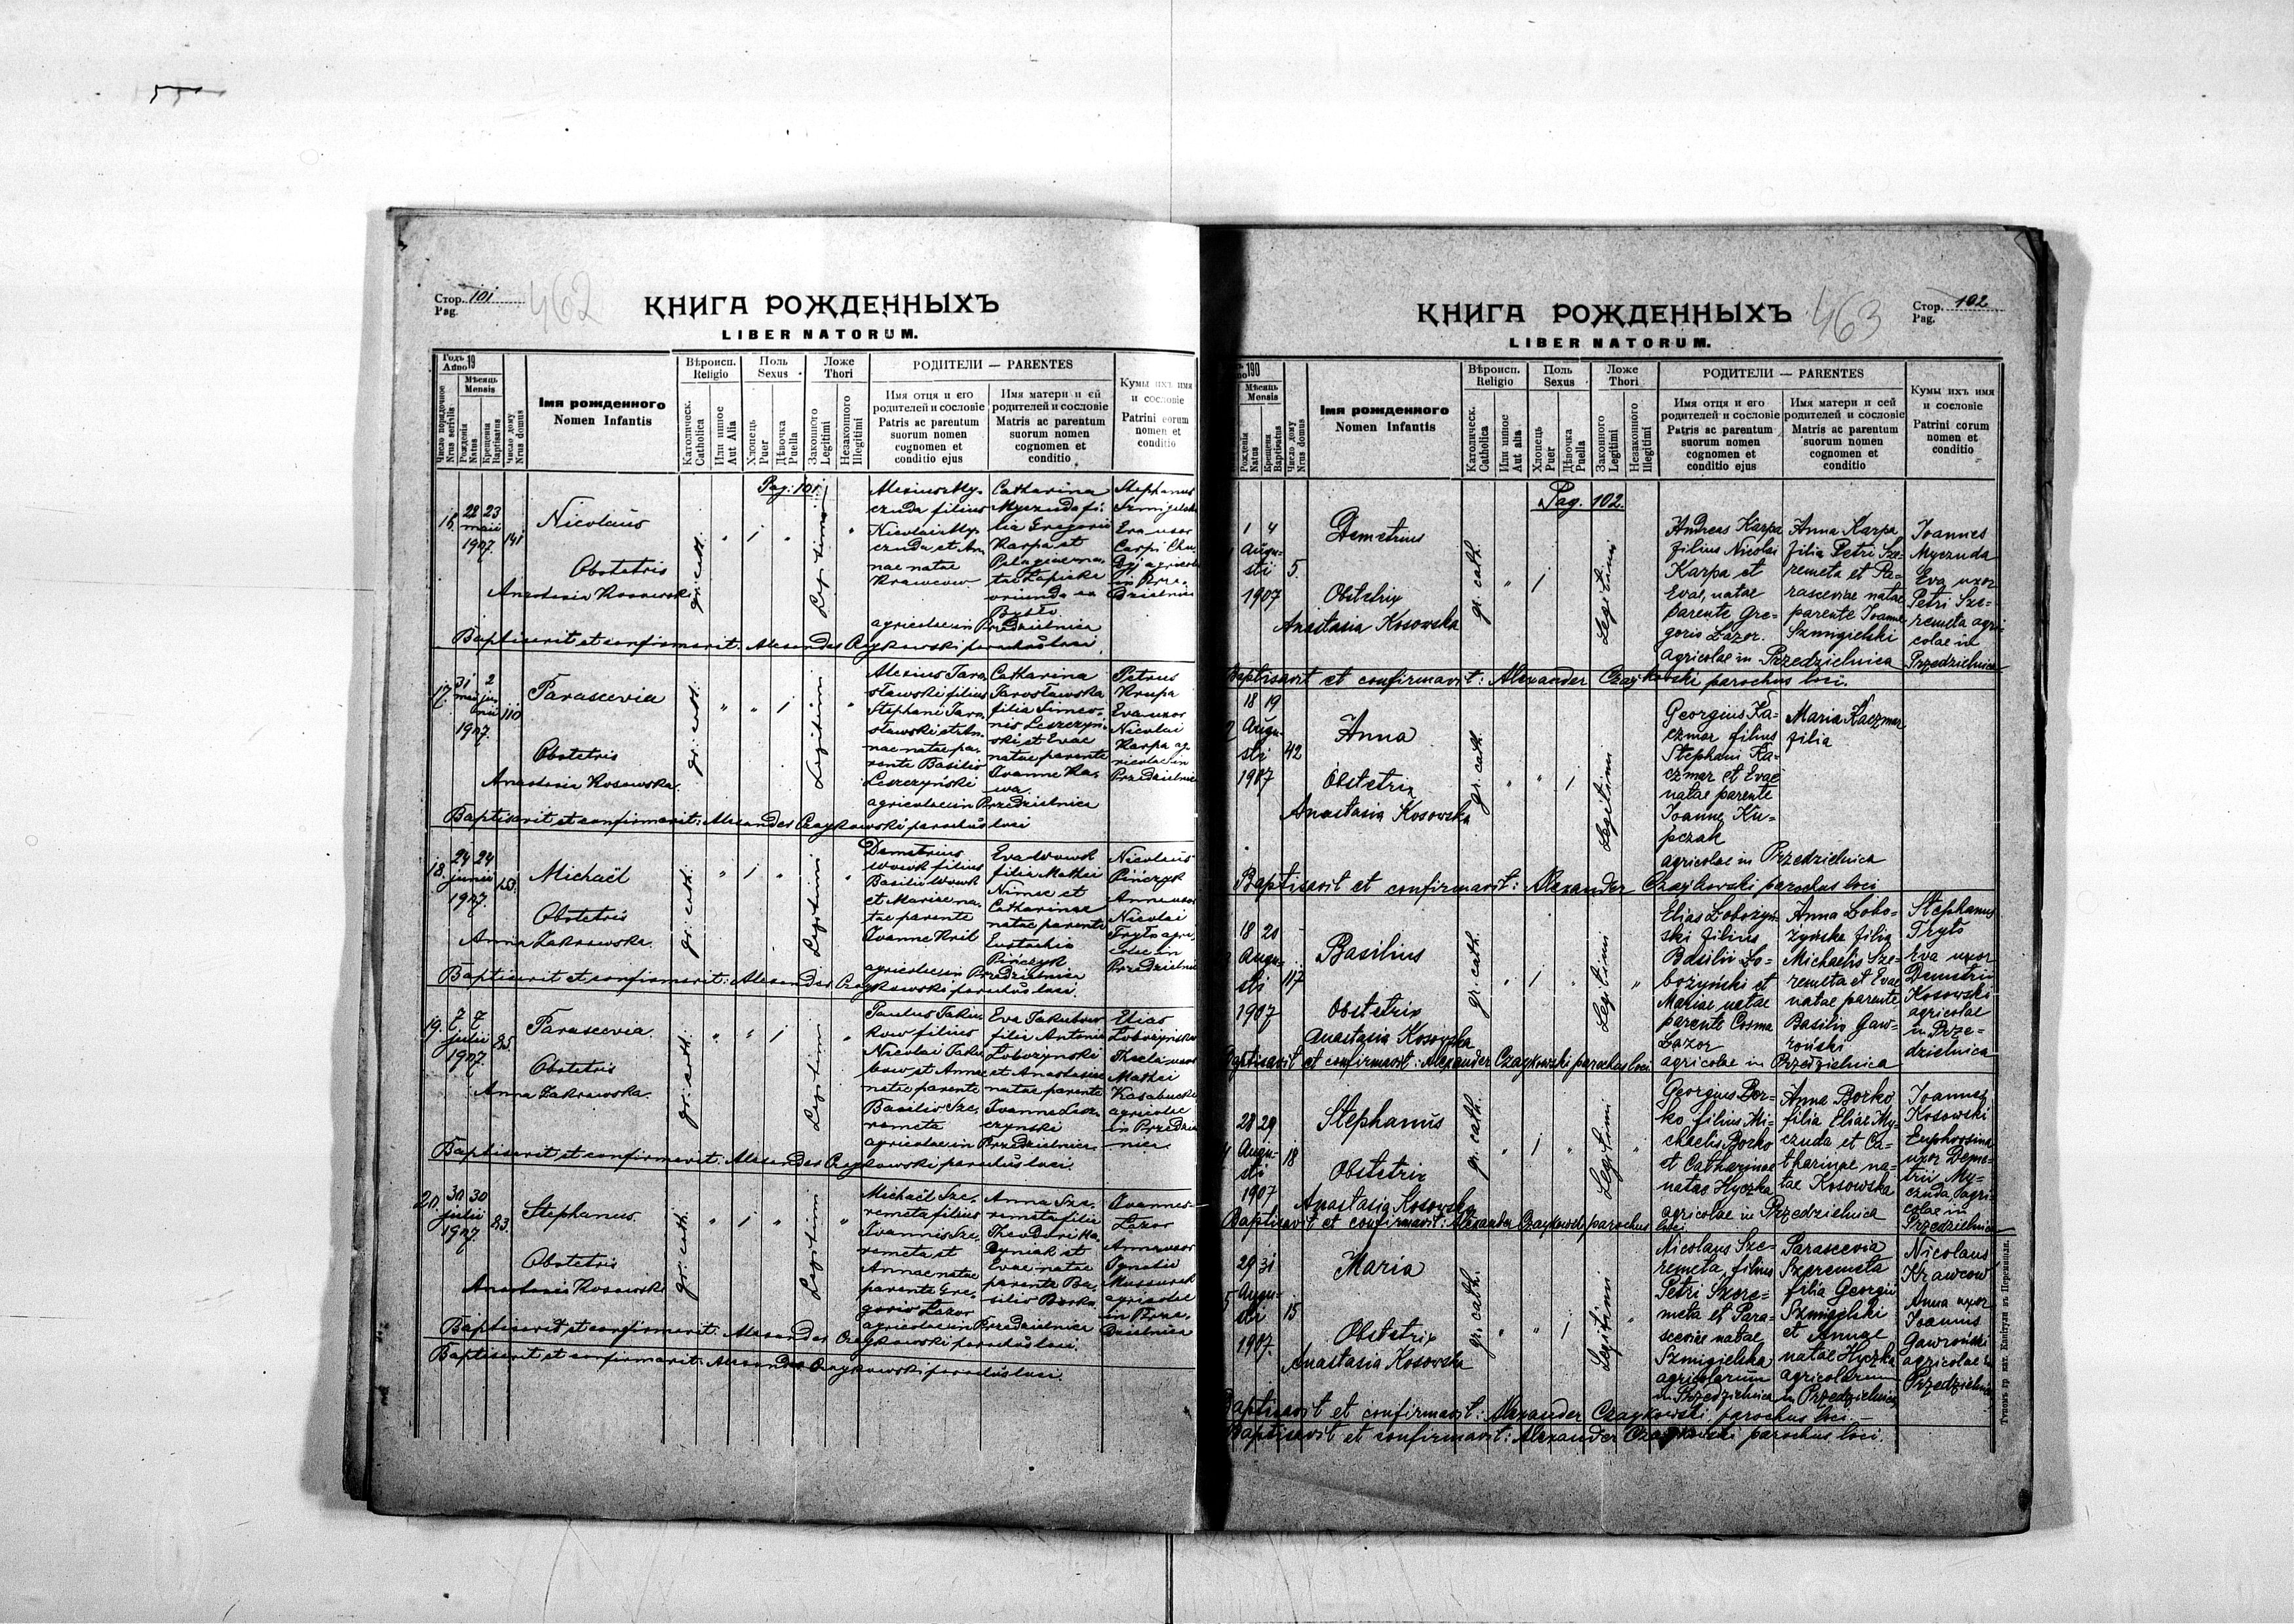 Стор. 101
Pag.
462
КНИГА РОЖДЕННЫХЪ
LIBER NATORUM.
Годъ 19
Anno
Мѣсяць
Mensis
Число порядочное
Nrus serialis
Рожденія
Natus
Крещенія
Baptisatus
Число дому
Nrus domus
Імя рожденного
Nomen Infantis
Вѣроисп.
Religio
Католическ.
Catholica
Или инное
Aut Alia
Поль
Sexus
Хлопець
Puer
Дѣвочка
Puella
Ложе
Thori
Законного
Legitimi
Незаконного
Illegitimi
РОДИТЕЛИ — PARENTES
Имя отця и его
родителей и сословіе
Patris ac parentum
suorum nomen
cognomen et
conditio ejus
Имя матери и ей
родителей и сословіе
Matris ac parentum
suorum nomen
cognomen et
conditio
Кумы ихъ имя
и сословіе
Patrini eorum
nomen et
conditio
Pag. 101.
16. 22 23
maii
1907. 141
Nicolaus
Obstetrix
Anastasia Kosowska
gr. cath.
Legitimi
Alexius My-
czuda filius
Nicolai My-
czuda et An-
nae natae
Krawcow
Catharina
Myczuda fi-
lia Gregorii
Karpa et
Pelagiae na-
tae
oriunda ex
agricolae in Przedzielnica
Stephanus
Szmigielski
Eva uxor
agricolae
in Prze-
dzielnica
Baptisavit et confirmavit: Alexander Czaykowski parochus loci.
17. 31 2
maii ju-
nii 110
1907.
Parascevia
Obstetrix
Anastasia Kosowska.
gr. cath.
Legitimi
Alexius Jaro-
sławski filius
Stephani Jaro-
sławski et An-
nae natae pa-
rente Basilio
Leszczyński
Catharina
Jarosławska
filia Simeo-
nis Leszczyń-
ski et Evae
natae parente
Joanne Ka-
wa.
agricolae in Przedzielnica
Petrus
Krupa
Eva uxor
Nicolai
Karpa ag-
ricolae in
Przedzielnica
Baptisavit et confirmavit: Alexander Czaykowski parochus loci
18. 24 24
junii
1907.
Michaël
Obstetrix
Anna Zakrewska.
gr. cath.
Legitimi
Demetrius
Wowk filius
Basilii Wowk
et Mariae na-
tae parente
Joanne Kril
Eva Wowk
filia Mathei
Nimec et
Catharinae
natae parente
Eustachio
Pińczyk
agricolae in Przedzielnica
Nicolaus
Pińczyk
Anna uxor
Nicolai
Tryto agri-
colae in
Przedzielnica
Baptisavit et confirmavit: Alexander Czaykowski parochus loci.
19. 7 7
julii 85.
1907.
Parascevia
Obstetrix
Anna Zakrewska.
gr. cath.
Legitimi
Paulus Jakub-
kow filius
Nicolai Jaku-
bow et Annae
natae parente
Basilio Sze-
remeta
Eva Jakubow
filia Antonii
Łobożynski
et Anastasiae
natae parente
Joanne Lesz-
czynski
agricolae in Przedzielnica
Elias
Łobożynski
Thecla uxor
Mathei
agricolae
in Przedziel-
nica.
Baptisavit et confirmavit: Alexander Czaykowski parochus loci.
20. 30 30
julii 83.
1907.
Stephanus.
Obstetrix
Anastasia Kosowska
gr. cath.
Legitimi
Michaël Sze-
remeta filius
Joannis Sze-
remeta et
Annae natae
parente Gre-
gorio Łazor
Anna Sze-
remeta filia
Theodori Ha-
dyniak et
Evae natae
parente Ba-
silio Borko
agricolae in Przedzielnica
Joannes
Łazor
Anna uxor
Ignatii
agricolae
in Prze-
dzielnica
Baptisavit et confirmavit: Alexander Czaykowski parochus loci.
Baptisavit et confirmavit: Alexander Czaykowski parochus loci.
КНИГА РОЖДЕННЫХЪ
LIBER NATORUM.
463
Стор. 102
Pag.
190
Мѣсяць
Mensis
Рожденія
Natus
Крещенія
Baptisatus
Число дому
Nrus domus
Імя рожденного
Nomen Infantis
Вѣроисп.
Religio
Католическ.
Catholica
Или инное
Aut alia
Поль
Sexus
Хлопець
Puer
Дѣвочка
Puella
Ложе
Thori
Законного
Legitimi
Незаконного
Illegitimi
РОДИТЕЛИ — PARENTES
Имя отця и его
родителей и сословіе
Patris ac parentum
suorum nomen
cognomen et
conditio ejus
Имя матери и сей
родителей и сословіе
Matris ac parentum
suorum nomen
cognomen et
conditio
Кумы ихъ имя
и сословіе
Patrini eorum
nomen et
conditio
Pag. 102.
1 4
Augu-
sti 5.
1907
Demetrius
Obstetrix
Anastasia Kosowska
gr. cath.
Legitimi
Andreas Karpa
filius Nicolai
Karpa et
Evae, natae
parente Gre-
gorio Łazor.
Anna Karpa
filia Petri Sze-
remeta et Pa-
rasceviae natae
parente Joanne
Szmigielski
agricolae in Przedzielnica
Joannes
Myczuda
Eva uxor
Petri Sze-
remeta agri-
colae in
Przedzielnica
Baptisavit et confirmavit: Alexander Czaykowski parochus loci.
18 19
Augu-
sti 42
1907
Anna
Obstetrix
Anastasia Kosowska
gr. cath.
Legitimi
Georgius Ka-
czmar filius
Stephani Ka-
czmar et Evae
natae parente
Joanne Ku-
pczak
Maria Kaczmar
filia
agricolae in Przedzielnica
Baptisavit et confirmavit: Alexander Czaykowski parochus loci
18 20
Augu-
sti 117
1907
Basilius
Obstetrix
Anastasia Kosowska
gr. cath.
Legitimi
Elias Łobożyń-
ski filius
Basilii Ło-
bożyński et
Mariae natae
parente Cosma
Łazor
Anna Łobo-
żyńska filia
Michaelis Sze-
remeta et Evae
natae parente
Basilio Gaw-
roński
agricolae in Przedzielnica
Stephanus
Tryto
Eva uxor
Demetrii
Kosowski
agricolae
in Prze-
dzielnica
Baptisavit et confirmavit: Alexander Czaykowski parochus loci
28 29
Augu-
sti 18
1907
Stephanus
Obstetrix
Anastasia Kosowska
gr. cath.
Legitimi
Georgius Bor-
ko filius Mi-
chaelis Borko
et Catharinae
natae Hyczka
Anna Borko
filia Eliae My-
czuda et Ca-
tharinae na-
tae Kosowska
agricolae in Przedzielnica
Joannes
Kosowski
Euphrosina
uxor Deme-
trii My-
czuda agri-
colae in
Przedzielnica
Baptisavit et confirmavit: Alexander Czaykowski parochus
loci
29 31
Augu-
sti 15
1907.
Maria
Obstetrix
Anastasia Kosowska
gr. cath.
Legitimi
Nicolaus Sze-
remeta, filius
Petri Szere-
meta et Para-
sceviae natae
Szmigielska
agricolarum
in Przedzielnica
Parascevia
Szeremeta
filia Georgii
Szmigielski
et Annae
natae Hyczka
agricolarum
in Przedzielnica
Nicolaus
Krawcow
Anna uxor
Joannis
Gawroński
agricolae in
Przedzielnica
Baptisavit et confirmavit: Alexander Czaykowski parochus loci.
Baptisavit et confirmavit: Alexander Czaykowski parochus loci.